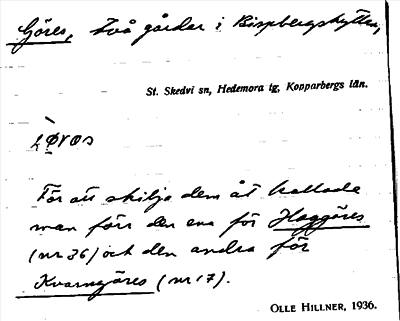 Göres, två gårdar i Bispbergshyttan,
St. Skedvi sn, Hedemora tg, Kopparbergs län.
För att skilja dem åt kallade
man förr den ena för Haggöres
(nr 36) och den andra för
Kvarngöres (nr 17).
OLLE HILLNER, 1936.